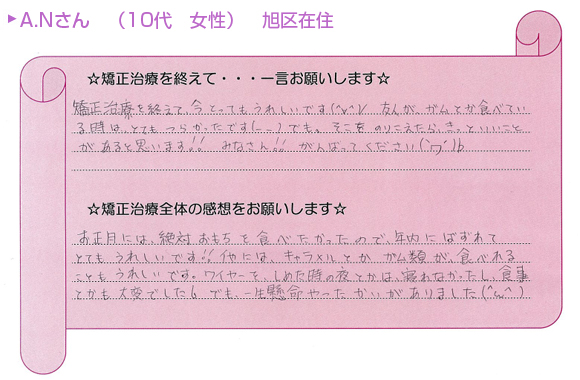 ▶A.Nさん （10代 女性） 旭区在住
☆矯正治療を終えて・・・一言お願いします☆
矯正治療を終えて、今とってもうれしいです(^v^)/ 友人が、ガムとか食べてい
る時は、とてもつらかったです(－－)でも。そこをのりこえたら、きっといいこと
があると思います!! みなさん!! がんばってください(^ワ^)b
☆矯正治療全体の感想をお願いします☆
お正月には、絶対おもちを食べたかったので、年内にはずれて
とてもうれしいです!!他には、キャラメルとかガム類が、食べれる
こともうれしいです。ワイヤーを、しめた時の夜とかは、寝れなかったし、食事
とかも大変でした。でも、一生懸命やったかいがありました(^_^)